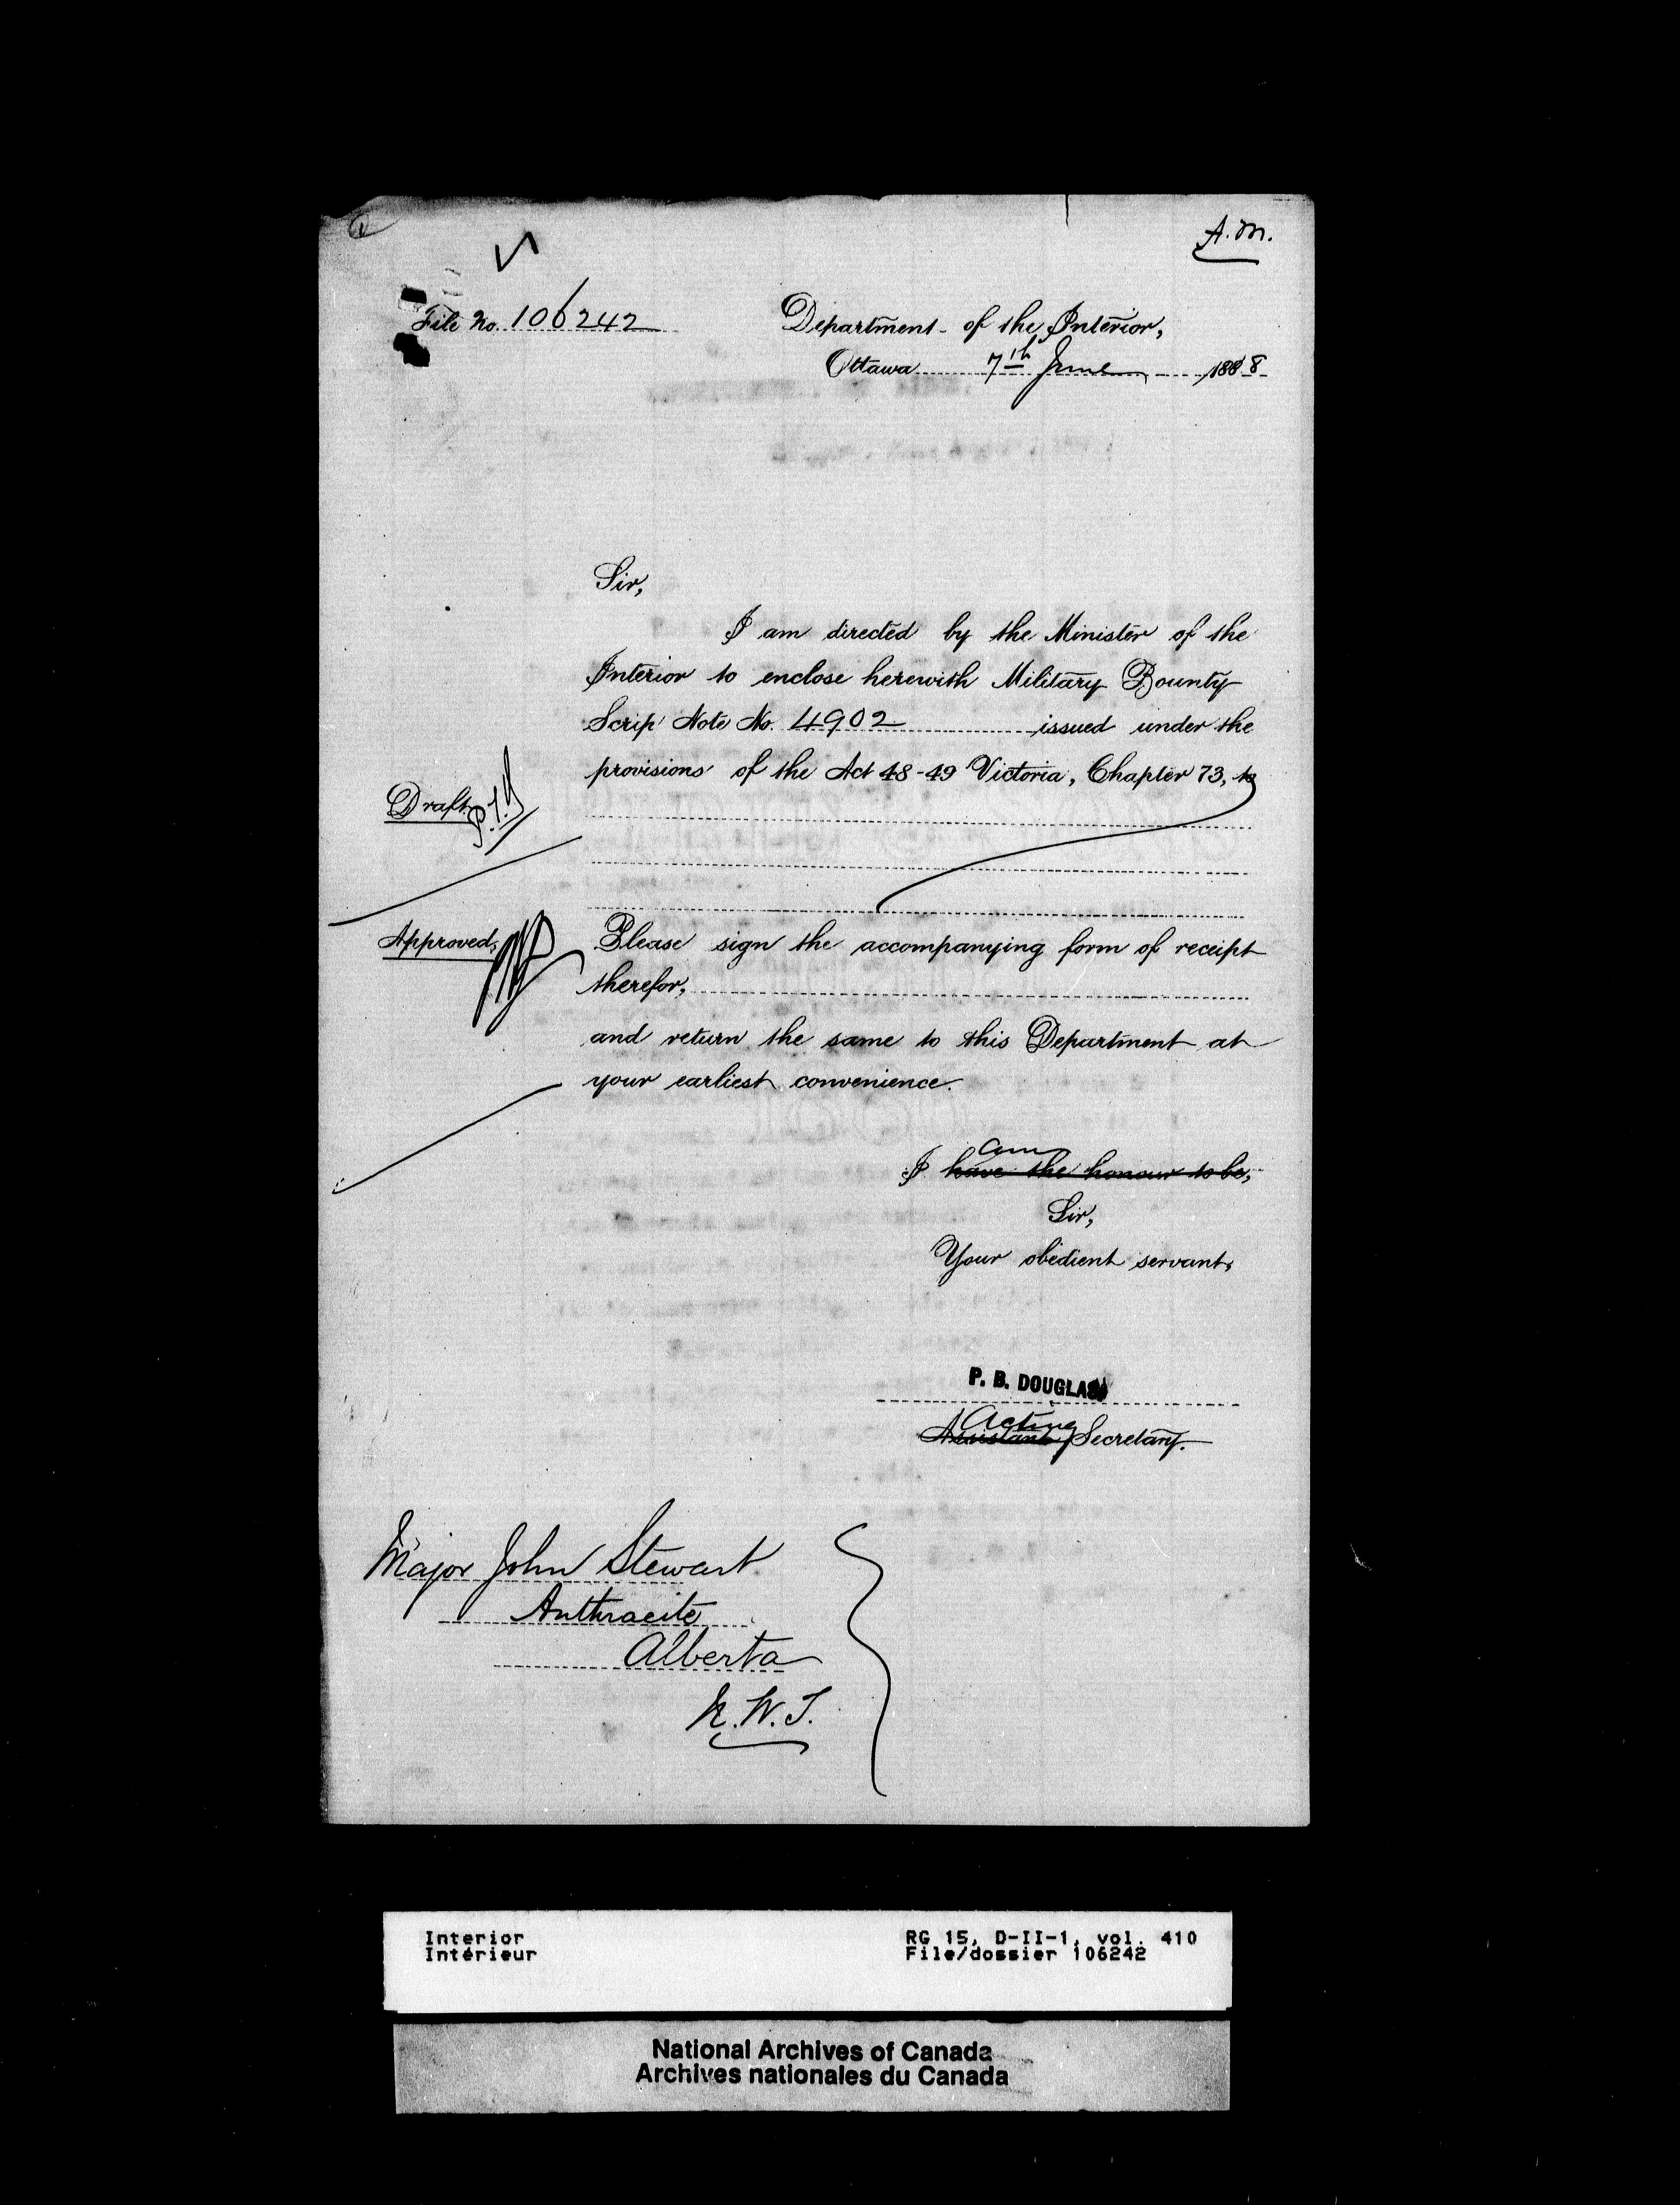 A.M.
File No. 106242
Department of the Interior,
Ottawa 7th June 1888
Sir,
I am directed by the Minister of the
Interior to enclose herewith Military Bounty
Scrip Note No. 4902 issued under the
provisions of the Act 48-49 Victoria, Chapter 73, to
Draft.
Approved,
Please sign the accompanying form of receipt
therefor,
and return the same to this Department at
your earliest convenience.
am
I have the honour to be,
Sir,
Your obedient servant,
P. B. DOUGLAS
Acting
Assistant Secretary.
Major John Stewart
Anthracite
Alberta
N.W.T.
Interior RG 15, D-II-1, vol. 410
Intérieur File/dossier 106242
National Archives of Canada
Archives nationales du Canada